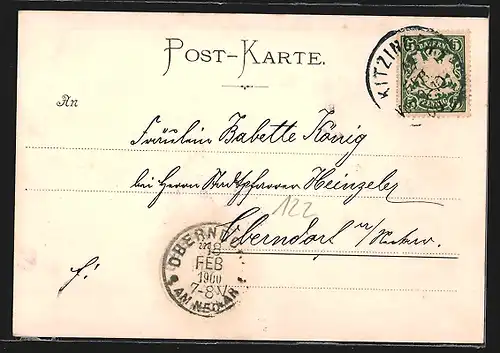 POST-KARTE.
KITZIN
BAYERN
5 5
PFENNIG
An
Fräulein Babette König
bei Herrn Stadtpfarrer Heinzeler
122
Oberndorf a/Neckar.
OBERN
18
FEB
1900
7-8V
AM NECKAR
f!